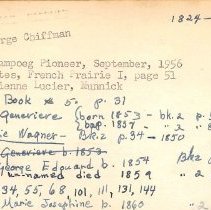 1824-
rge Chiffman
ampoeg Pioneer, September, 1956
tes, French Prairie I, page 51
ienne Lucier, Munnick
Book # 5. p. 31
Genevieve (born 1853 - bk. 2 p. 5
(bap. 1857 " 2 "
ie Wagner - Bk 2 p. 34 - 1850
Genevieve b. 1853
George Edouard b. 1854 Bk 2
unnamed died 1859 " 2
34, 55, 68, 101, 111, 131, 144
Marie Josephine b. 1860 " 2